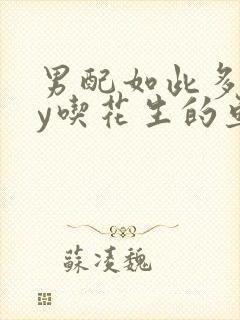 男配如此多
y喫花生的
蘇凌魏